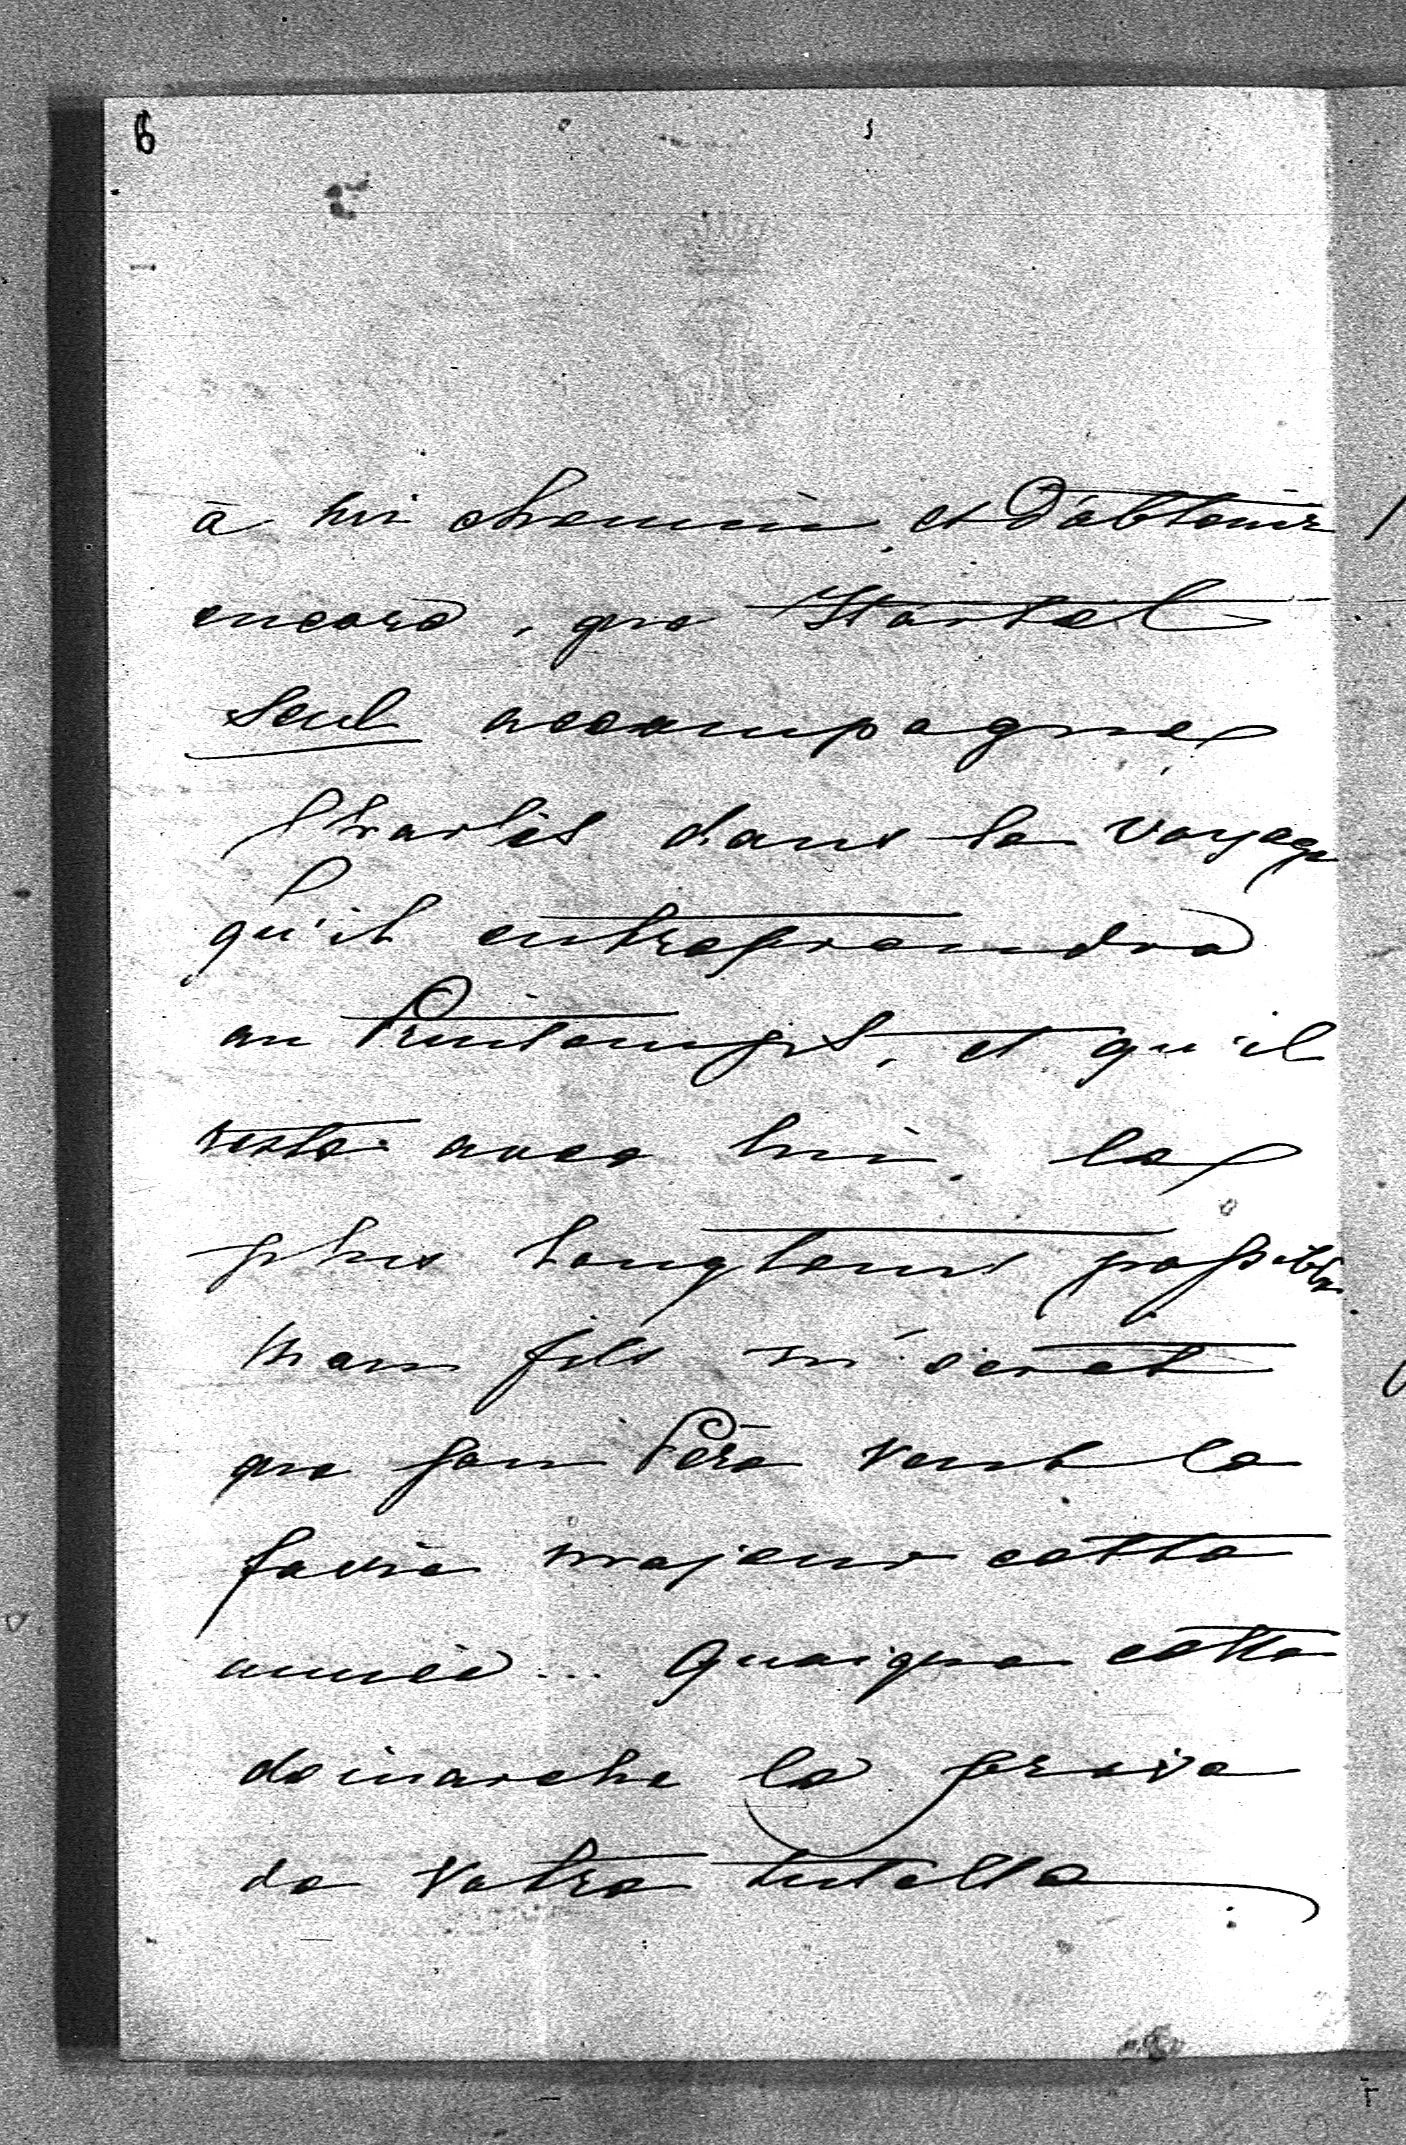 6
à lui chemin, et d'obtenir
encore, que Hartel
seul accompagne
Charles dans le voyage
qu'il entreprendra
au Printemps, et qu'il
reste avec lui, le
plus longtems possible.
Mon fils m'écrit
que son Père veut le
faire majeur cette
année... Quoique cette
démarche le prive
de votre tutelle